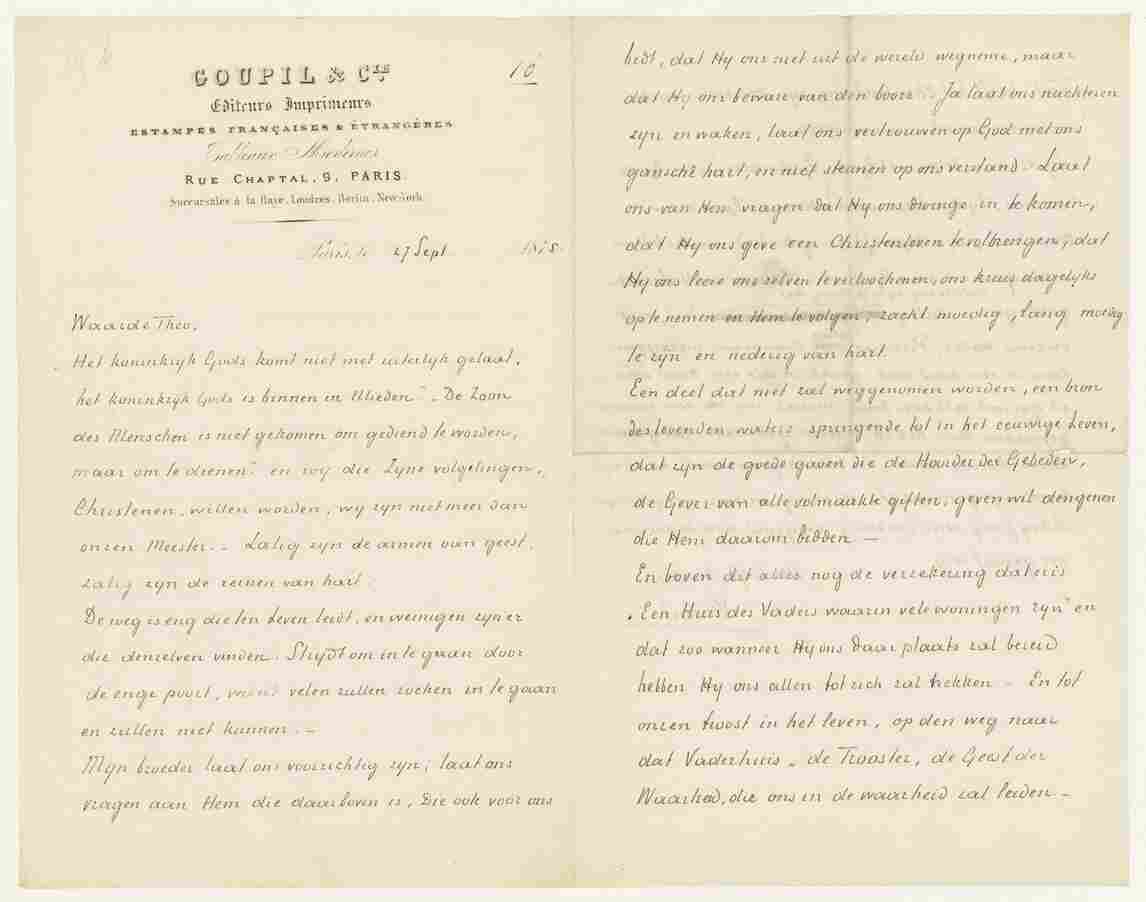 GOUPIL & Cie
Editeurs Imprimeurs
ESTAMPES FRANÇAISES & ÉTRANGÈRES
Tableaux Modernes
RUE CHAPTAL, 9, PARIS.
Succursales à la Haye, Londres, Berlin, New-York.
10
Paris, le 27 Sept 1875
Waarde Theo,
„Het koninkrijk Gods komt niet met uiterlijk gelaat,
het koninkrijk Gods is binnen in Ulieden”. „De Zoon
des Menschen is niet gekomen om gediend te worden,
maar om te dienen” en wij die Zyne volgelingen,
Christenen, willen worden, wy zyn niet meer dan
onzen Meester. – Zalig zyn de armen van geest,
zalig zyn de reinen van hart.
De weg is eng die ten Leven leidt, en weinigen zyn er
die denzelven vinden. Strijdt om in te gaan door
de enge poort, want velen zullen zoeken in te gaan
en zullen niet kunnen. –
Mijn broeder laat ons voorzichtig zyn; laat ons
vragen aan Hem die daarboven is, Die ook voor ons
bidt, dat Hy ons niet uit de wereld wegneme, maar
dat Hy ons beware van den booze. Ja laat ons nuchteren
zyn en waken, laat ons vertrouwen op God met ons
gansche hart, en niet steunen op ons verstand. Laat
ons van Hem vragen dat Hy ons dwinge in te komen,
dat Hy ons geve een Christenleven te volbrengen; dat
Hy ons leere ons zelven te verloochenen, ons kruis dagelijks
op te nemen en Hem te volgen; zacht moedig, lang moedig
te zyn en nederig van hart.
Een deel dat niet zal weggenomen worden, een bron
des levenden waters springende tot in het eeuwige Leven,
dat zyn de goede gaven die de Hoorder der Gebeden,
de Gever van alle volmaakte giften, geven wil dengenen
die Hem daarom bidden –
En boven dit alles nog de verzekering dat er is
„Een Huis des Vaders waarin vele woningen zyn” en
dat zoo wanneer Hy ons daar plaats zal bereid
hebben Hy ons allen tot zich zal trekken – En tot
onzen troost in het leven, op den weg naar
dat Vaderhuis „de Trooster, de Geest der
Waarheid, die ons in de waarheid zal leiden –